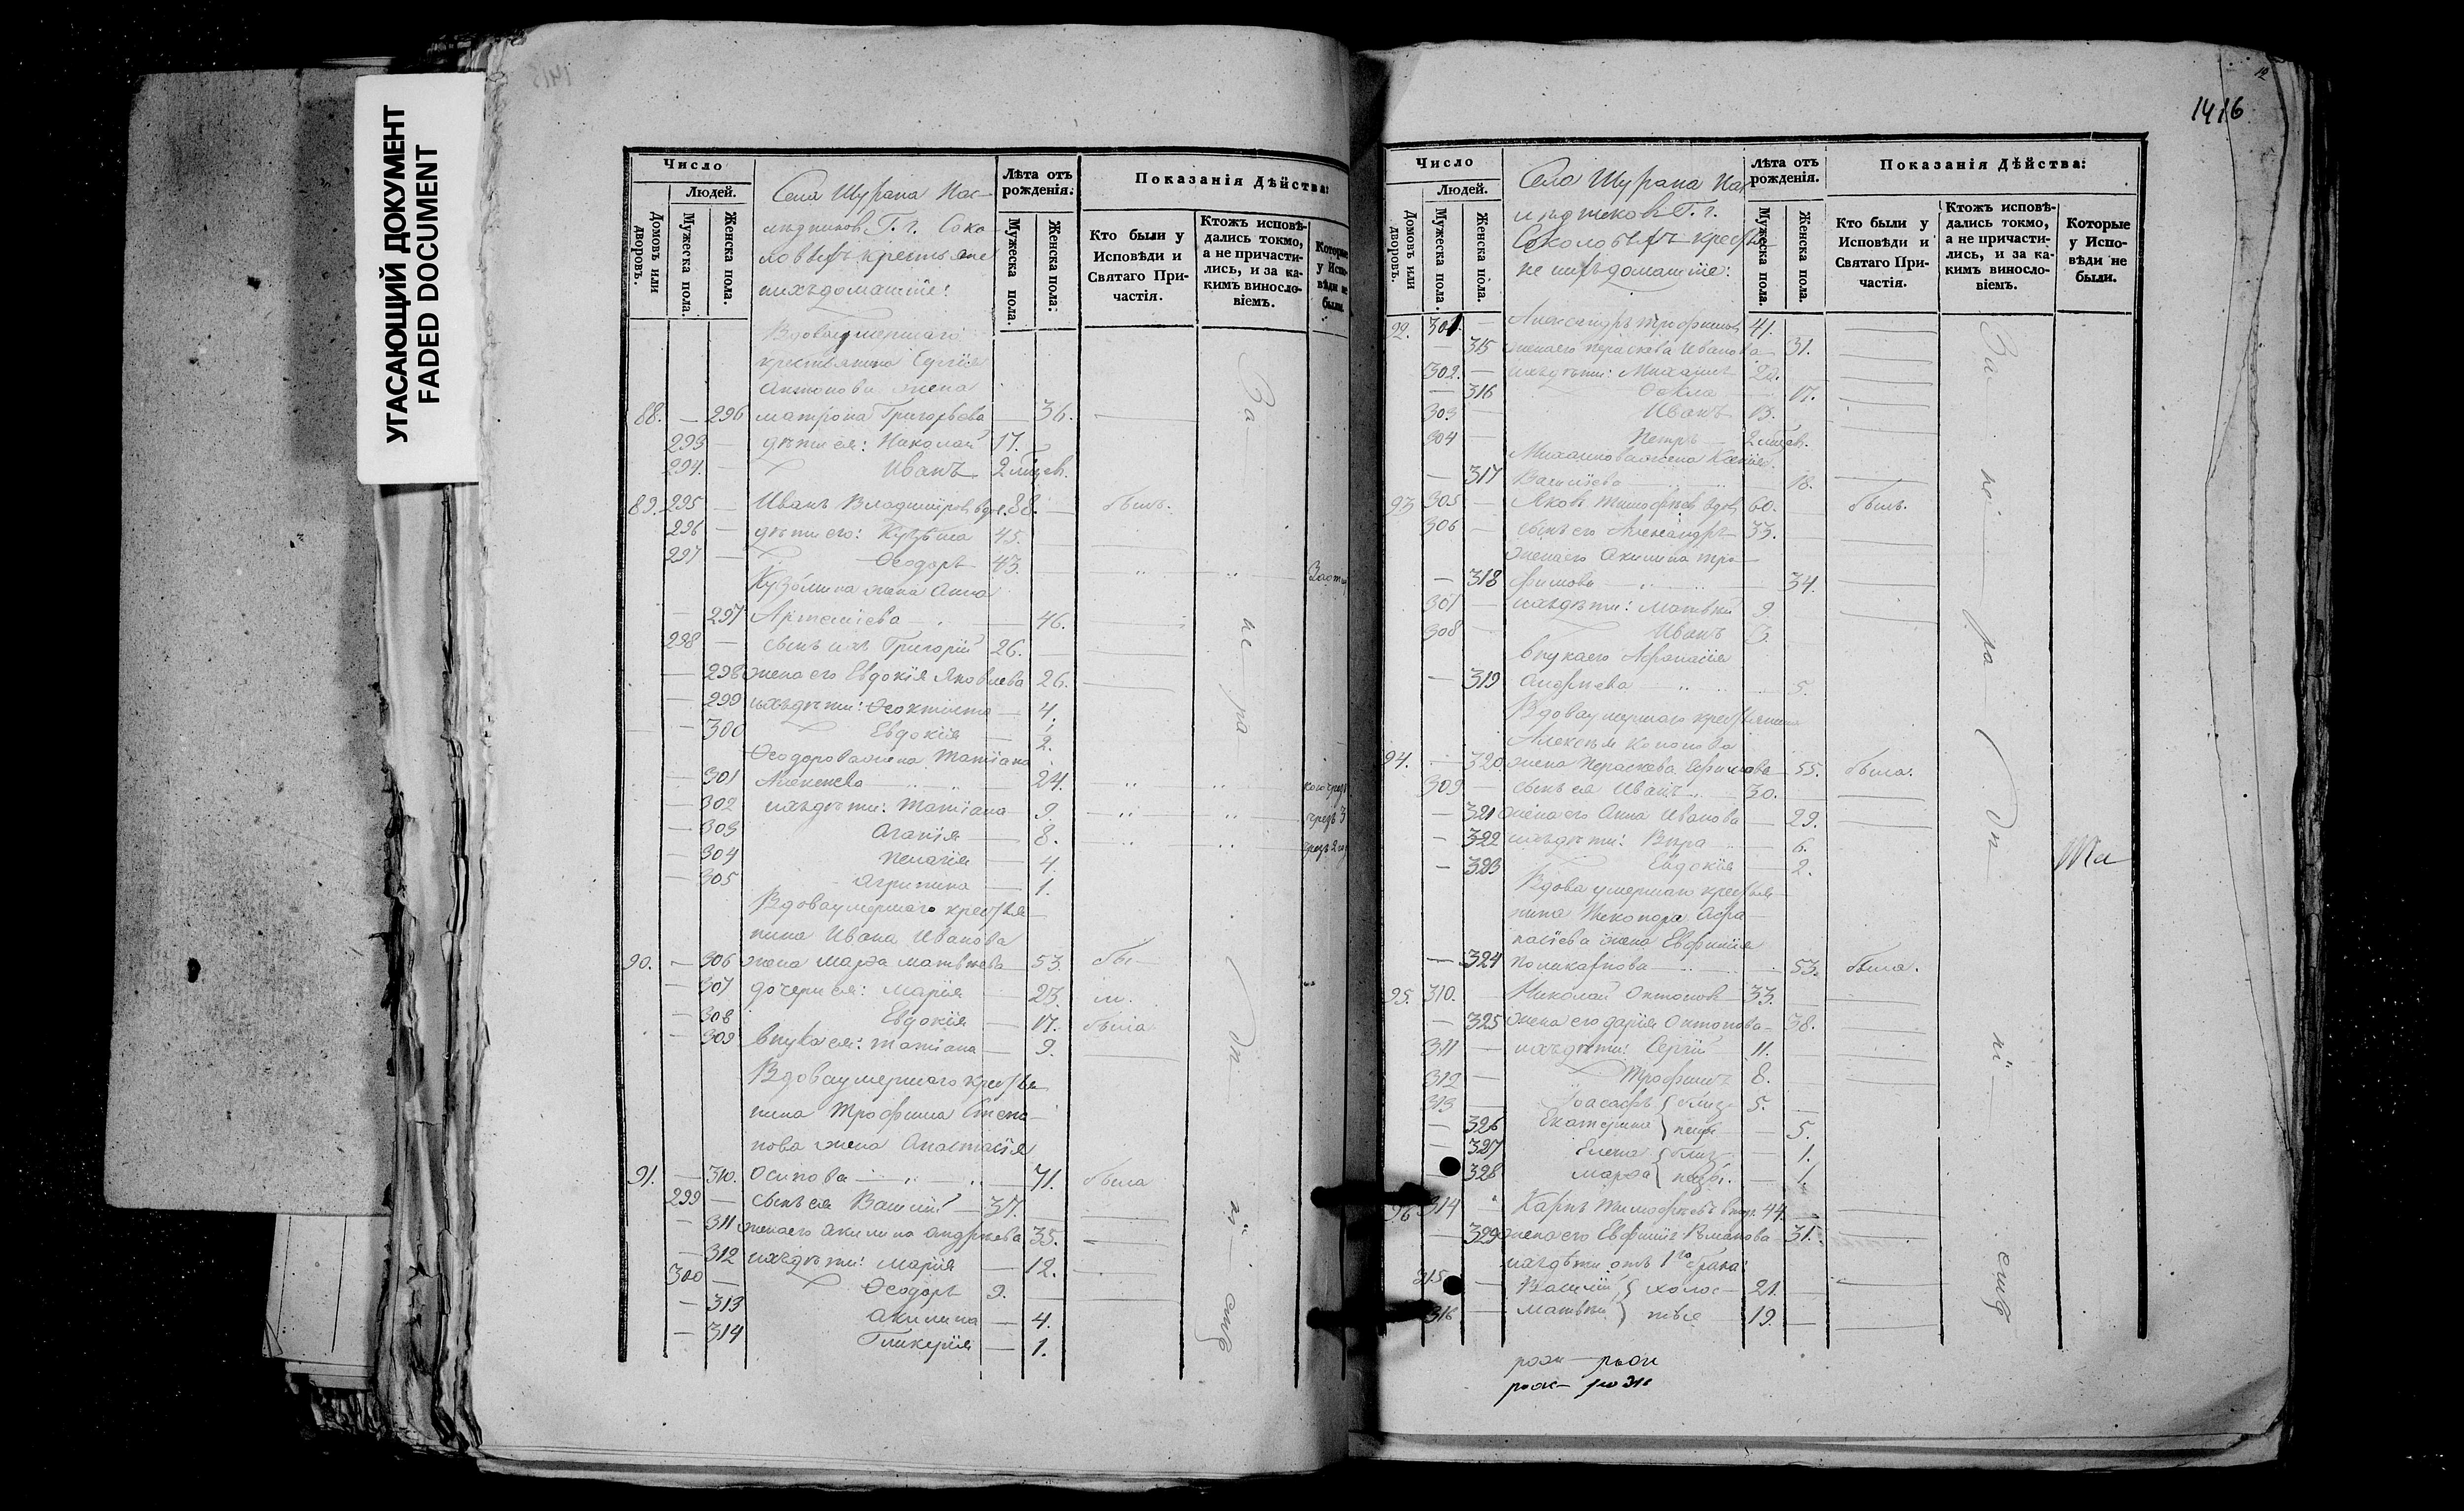 УГАСАЮЩИЙ ДОКУМЕНТ
FADED DOCUMENT
Число
Людей.
Домовъ или дворовъ.
Мужеска пола.
Женска пола.
Села Шурана Нас-
лѣдниковъ Г. г. Соко
ловыхъ крестьяне
ихъ домашніе:
Лѣта отъ рожденія.
Мужеска пола.
Женска пола.
Показанія Дѣйства:
Кто были у Исповѣди и Святаго Причастія.
Ктожъ исповѣдались токмо, а не причастились, и за какимъ винословіемъ.
Которые у Исповѣди не были.
Вдова умершаго
крестьянина Сергія
Антонова жена
88. — 296 матрона Григорьева — 36.
293 — дѣти ея: Николай 17.
294. — Иванъ 2
89. 295 — Иванъ Владиміровъ вдов. 88. — былъ.
296 — дѣти его: Кузьма 45.
297 — Ѳеодоръ 43.
Кузьмина жена Анна
— 297 Артеміева — 46.
298 — сынъ ихъ Григорій 26.
— 298 жена его Евдокія Яковлева 26.
— 299 ихъ дѣти: Ѳеоктиста — 4.
— 300 Евдокія — 2.
Ѳеодорова жена Татіана
— 301 Алексѣева — 24.
— 302 ихъ дѣти: Татіана — 9.
— 303 Агапія — 8.
— 304 Пелагія — 4.
— 305 Агрипина — 1.
Вдова умершаго крестья
нина Ивана Иванова
90. — 306 жена Марѳа Матвѣева — 53. бы-
— 307 дочери ея: Марія — 23. ли.
— 308 Евдокія — 17. была
— 309 внука ея: Татіана — 9.
Вдова умершаго крестья
нина Трофима Степа
нова жена Анастасія
91. — 310. Осипова — 71. была
299 — сынъ ея Василій — 37.
— 311 жена его Акилина Андреева 35.
— 312 ихъ дѣти: Марія — 12.
300 — Ѳеодоръ 9.
— 313 Акилина — 4.
— 314 Гликерія — 1.
За
не
ра
дѣ
ні
емъ
12
1416
Число
Людей.
Домовъ или дворовъ.
Мужеска пола
Женска пола.
Село Шурана Нас
лѣдниковъ Г. г.
Соколовыхъ крестья
не ихъ домашніе:
Лѣта отъ рожденія.
Мужеска пола.
Женска пола.
Показанія Дѣйства:
Кто были у Исповѣди и Святаго Причастія.
Ктожъ исповѣдались токмо, а не причастились, и за какимъ винословіемъ.
Которые у Исповѣди не были.
92. 301. — Александръ Трофимовъ 41.
— 315 жена его Параскева Иванова 31.
302. — ихъ дѣти: Михаилъ 20.
— 316 Ѳекла 17.
303 — Иванъ 13.
304 — Петръ 2
Михаилова жена Ксенія
— 317 Васильева — 18.
93 305 — Яковъ Тимофѣевъ вдов 60. — былъ.
306 — сынъ его Александръ 33.
жена его Акилина Тро-
— 318 фимова 34.
307 — ихъ дѣти: Матвѣй 9
308 — Иванъ 3.
внука его Афанасія
— 319 Андреева — 5.
Вдова умершаго крестьянина
Алексѣя Кононова
94. — 320 жена Параскева Ефимова 55. была.
309 — сынъ ея Иванъ 30.
— 321 жена его Анна Иванова 29.
— 322 ихъ дѣти: Вѣра 6.
— 323 Евдокія — 2.
Вдова умершаго крестья-
нина Никонора Афа-
насіева жена Евфимія
— 324 Поликарпова — 53. была.
95. 310. — Николай Антоновъ 33.
— 325 жена его Дарія Антонова 38.
311 — ихъ дѣти: Сергій 11.
312 — Трофимъ 8.
313 — Іоасафъ } близ- 5.
— 326 Екатерина } нецы — 5.
— 327 Елена } близ- — 1.
— 328 Марѳа } нецы. — 1.
96 314 Карпъ Тимофѣевъ 44.
— 329 жена его Евфимія Романова 31.
ихъ дѣти отъ 1го брака:
315 — Василій, } холос- 21.
316 — Матвѣй } тые 19.
За
не
ра
дѣ
ні
емъ